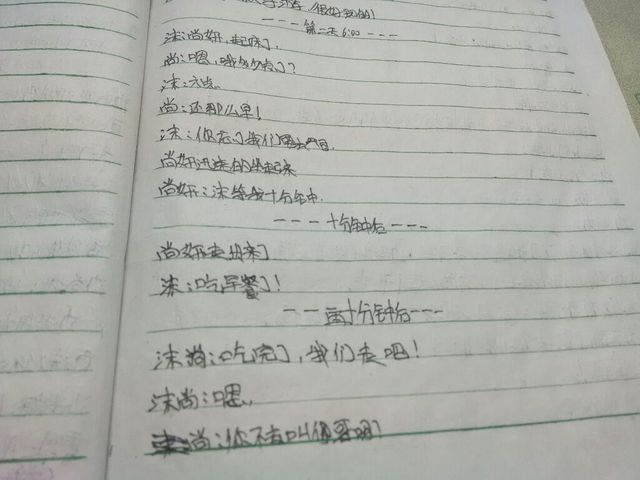 ---第二天6:00---
沫:尚妍,起床了.
尚:嗯,哦几点了?
沫:六点.
尚:还那么早!
沫:你忘了我们要去
尚妍迅速的 起来
尚妍:沫等我十分钟.
---十分钟后---
尚妍走出来了
沫:吃早餐了!
--两十分钟后---
沫尚:吃完了,我们走吧!
沫尚:嗯.
尚:你不去叫